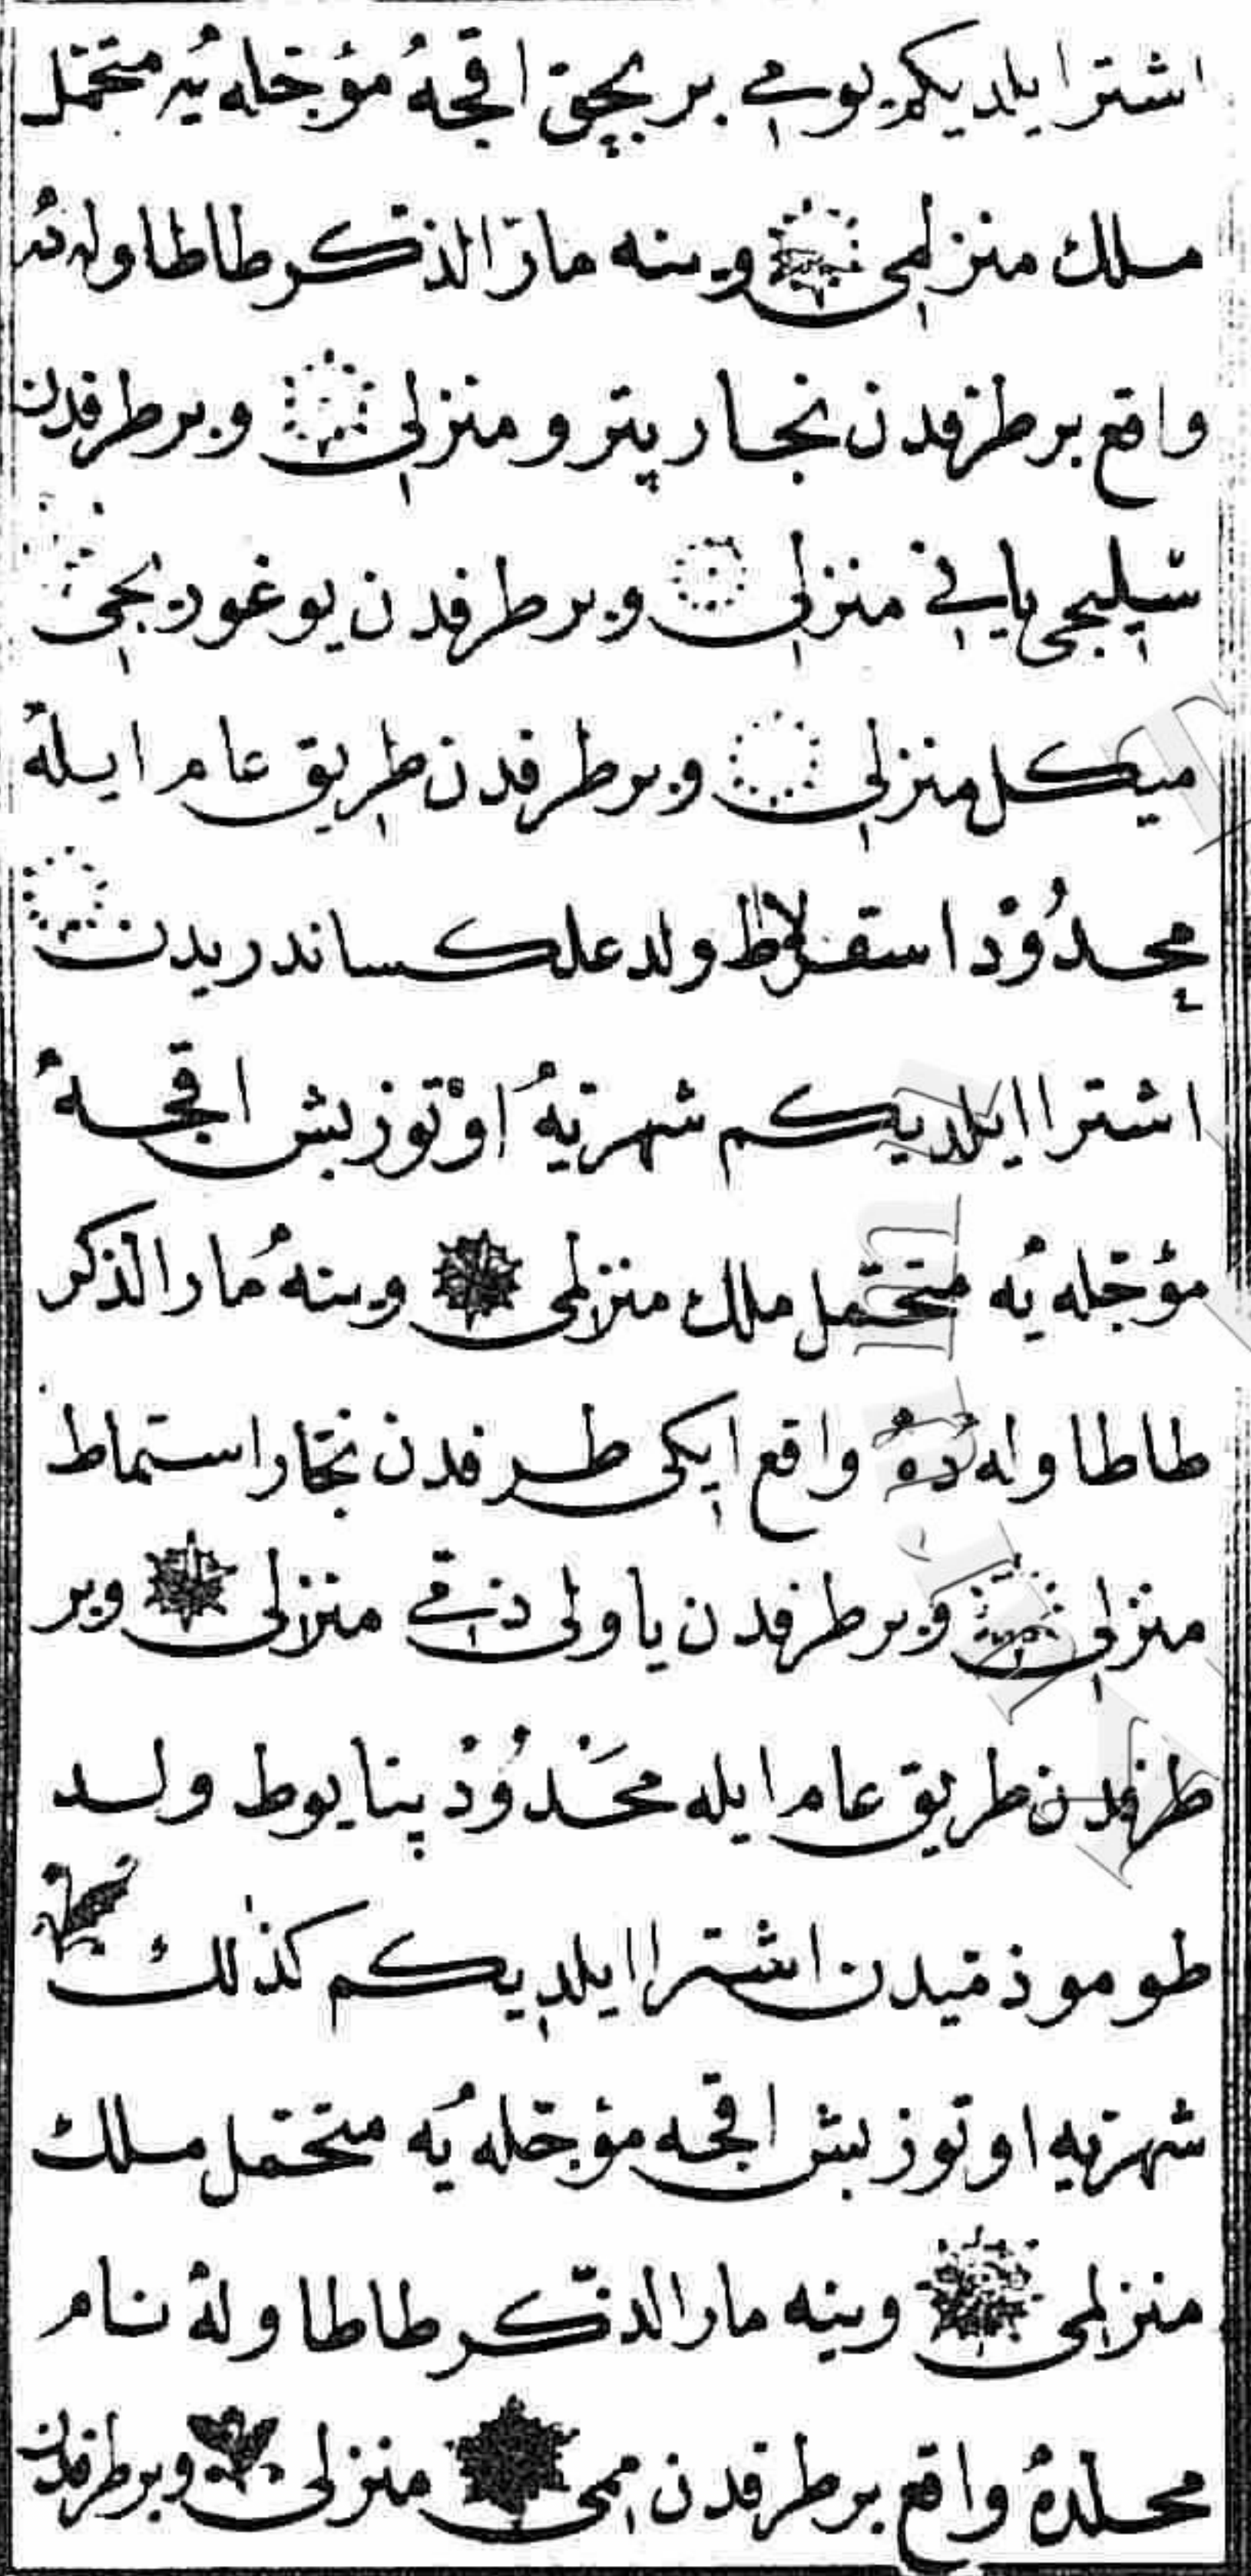 اشترا ایلدیکم یومی بر بچق اقچهُ مؤجّله یُه متحمّل
ملك منزلمی وینه مارّ الذّکر طاطاوله ده
واقع بر طرفدن نجار پترو منزلی وبر طرفدن
سپلیجی یانی منزلی وبر طرفدن یوغوردجی
میکل منزلی وبر طرفدن طریق عام ایله
محدُوْد اسقرلاط ولد علکساندریدن
اشترا ایلدیکم شهریهُ اوْتوز بش اقچهُ
مؤجّله یُه متحمّل ملك منزلمی وینهُ مار الذکر
طاطاوله دهُ واقع ایکی طرفدن نجّار استماط
منزلی وبر طرفدن یاولی ذنقی منزلی وبر
طرفدن طریق عام ایله محَدُوْدْ پنایوط ولد
طوموذقیدن اشترا ایلدیکم کذٰلك
شهریه اوتوز بش اقچه مؤجّله یُه متحمّل ملك
منزلمی وینه مار الذّکر طاطاولهُ نام
محلدهُ واقع بر طرفدن ممی منزلی وبر طرفدن